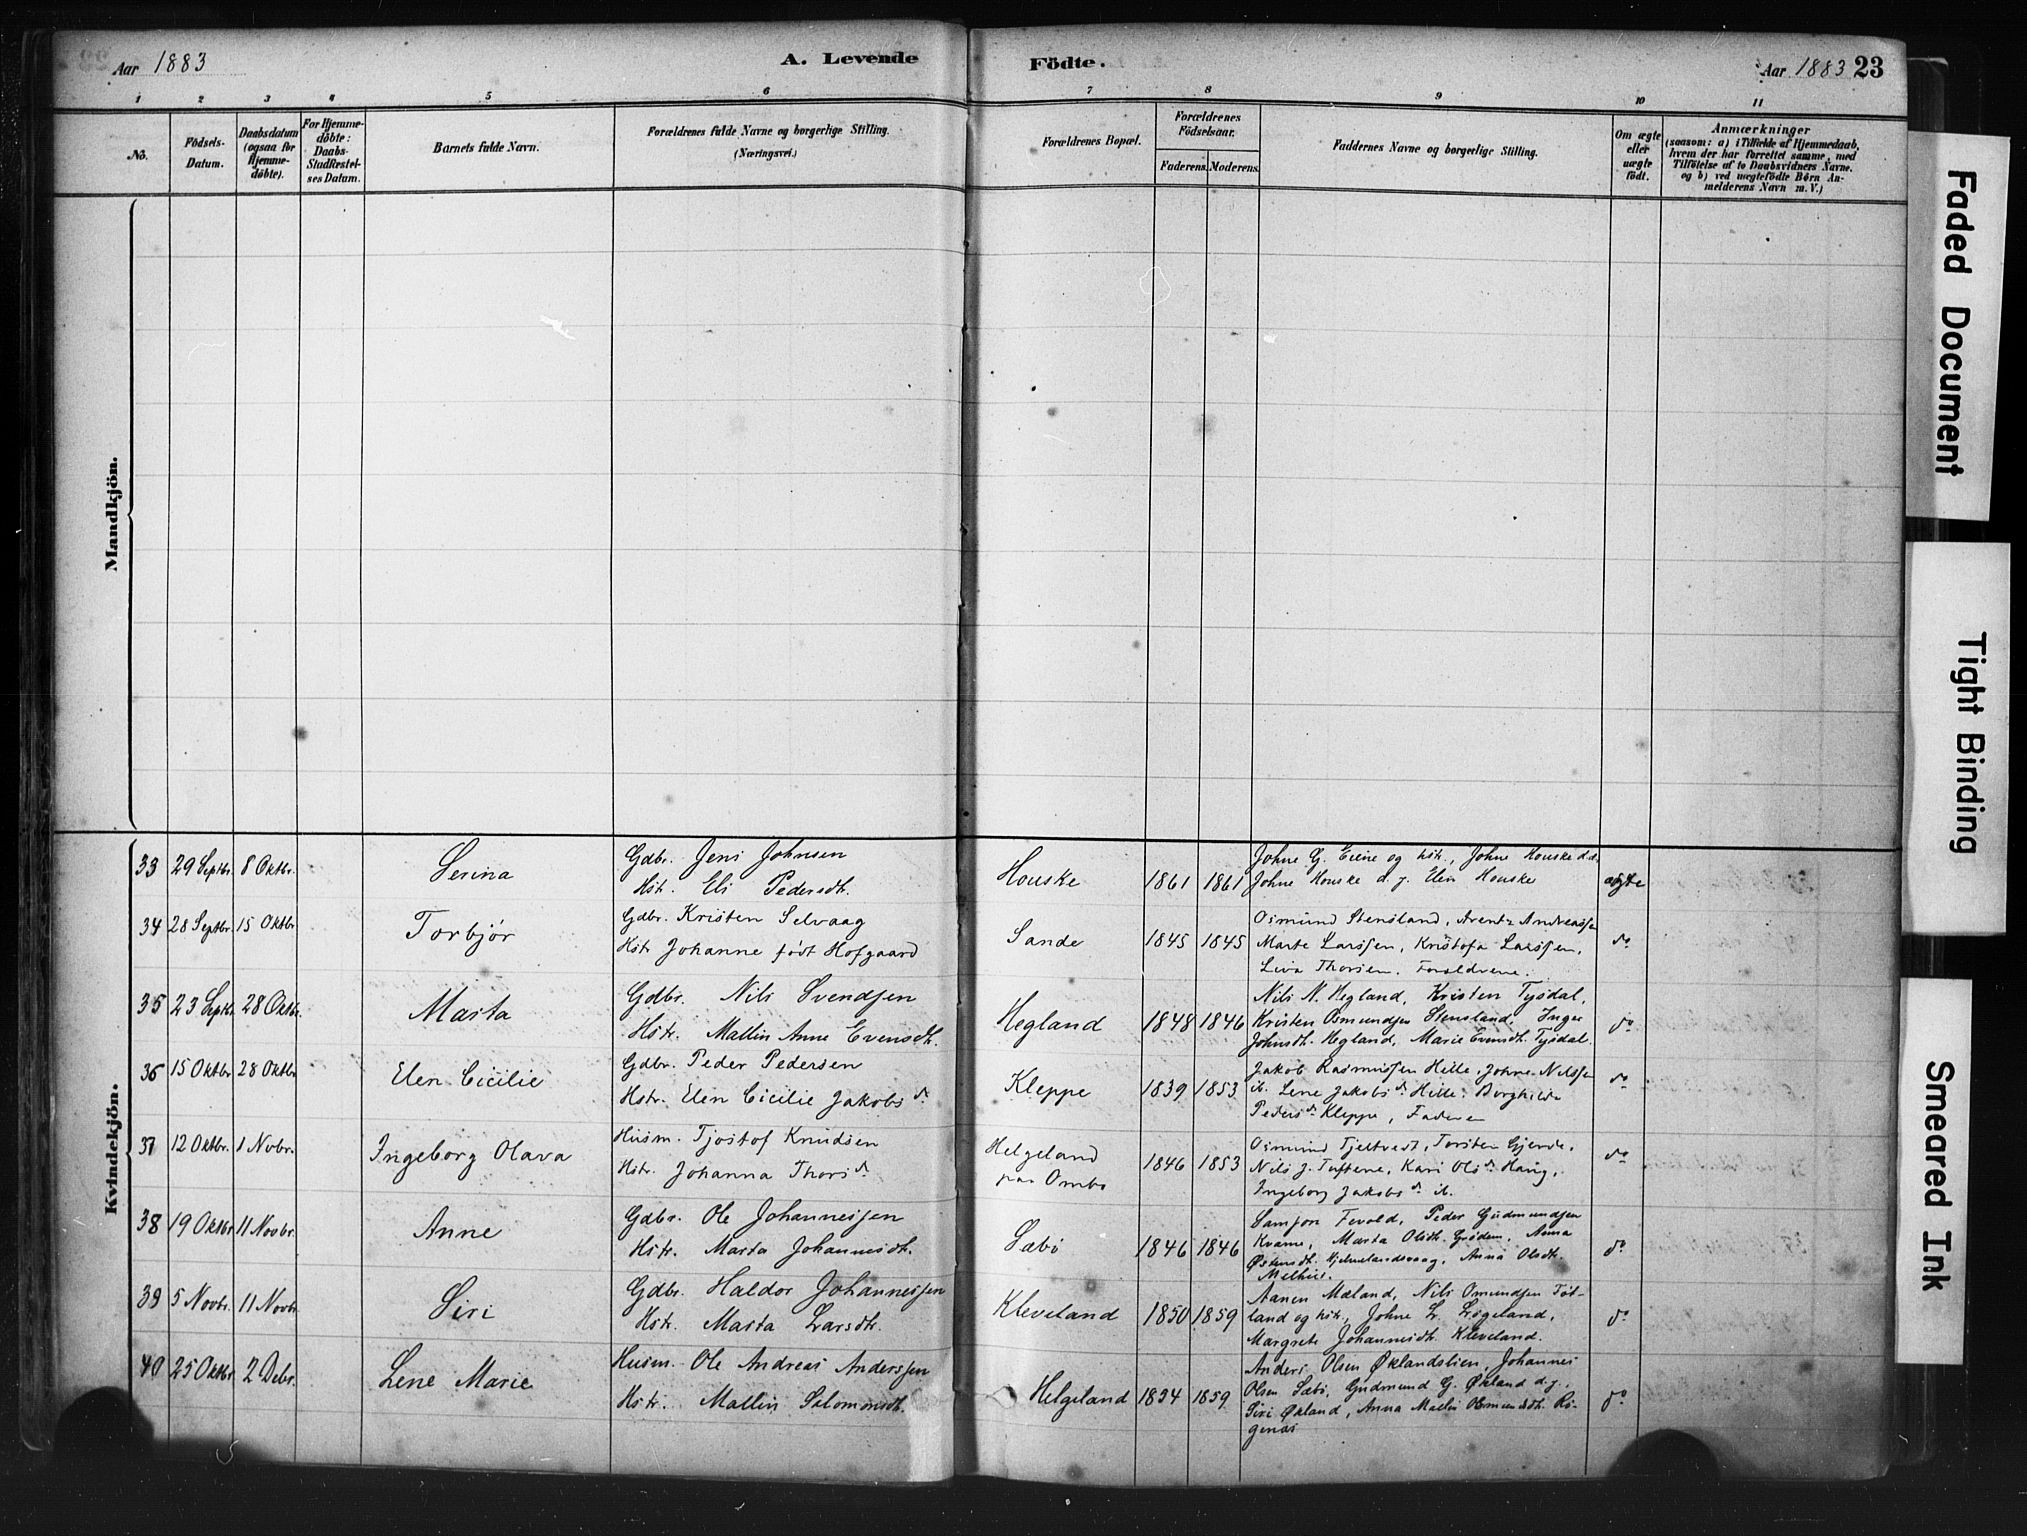 Aar 1883
A. Levende
Födte.
Aar 1883 23
1 2 3 4 5 6 7 8 9 10 11
No.
Födsels-
Datum.
Daabsdatum
(ogsaa for
Hjemme-
döbte).
For Hjemme-
döbte:
Daabs-
Stadfæstel-
ses Datum.
Barnets fulde Navn.
Forældrenes fulde Navne og borgerlige Stilling.
(Næringsvei.)
Forældrenes Bopæl.
Forældrenes
Födselsaar.
Faderens. Moderens.
Faddernes Navne og borgerlige Stilling.
Om ægte
eller
uægte
födt.
Anmærkninger
(saasom: a) i Tilfælde af Hjemmedaab,
hvem der har forrettet samme, med
Tilföielse af to Daabsvidners Navne.
og b) ved uægtefödte Börn An-
melderens Navn m. V.)
Mandkjön.
Kvindekjön.
33 29 Septbr. 8 Oktbr. Serina
Gdbr. Jens Johnsen
Hst. Eli Pedersdt.
Houske 1861 1861
Johne G. Eiene og hstr., Johne Houske d.æ.
Johne Houske d.y. Elen Houske
ægte
34 28 Septbr. 15 Oktbr. Torbjør
Gdbr. Kristen Selvaag
Hstr Johanne født Hofgaard
Sande 1845 1845
Osmund Stensland, Arentz Andreassen
Marte Larssen, Kristofa Larssen,
Liva Thorsen. Forældrene.
do
35 23 Septbr. 28 Oktbr. Marta
Gdbr. Nils Svendsen
Hstr. Mallin Anne Evensdt.
Hegland 1848 1846
Nils N. Hegland, Kristen Tysdal,
Kristen Osmundsen Stensland, Inger
Johnsdt. Hegland, Marie Evensdt. Tysdal.
do
36 15 Oktbr 28 Oktbr. Elen Cicilie
Gdbr. Peder Pedersen
Hstr. Elen Cicilie Jakobsdr
Kleppe 1839 1853
Jakob Rasmussen Hille, Johne Nilssen
ib. Lene Jakobsdr Hille, Borghilde
Pedersdr Kleppe, Faderen
do
37 12 Oktbr. 1 Novbr. Ingeborg Olava
Husm. Tjostof Knudsen
Hstr. Johanna Thorsdr
Helgeland
paa Ombo 1846 1853
Osmund Tjeltvedt, Torsten Gjerde,
Nils J. Tuftene, Kari Olsdr Haug,
Ingeborg Jakobsdr ib.
do
38 19 Oktbr 11 Novbr. Anne
Gdbr. Ole Johannessen
Hstr. Marta Johannesdt.
Sæbø 1846 1846
Samson Fevold, Peder Gudmundsen
Kvame, Marta Olsdt. Grødem, Anna
Østensdt. Hjelmelandsvaag, Anna Olsdt.
do
39 5 Novbr. 11 Novbr. Siri
Gdbr. Haldor Johannessen
Hstr. Marta Larsdtr.
Kleveland 1850 1859
Aanen Mæland, Nils Omundsen Töt-
land og hstr, Johne L.
Margrete Johannesdt. Kleveland.
do
40 25 Oktbr 2 Debr. Lene Marie
Husm. Ole Andreas Anderssen
Hstr. Mallin Salomonsdt.
Helgeland 1834 1859
Anders Olsen Øklandslien, Johannes
Olsen Sæbö, Gudmund G. Økland d.y.
Siri Økland, Anna Malli Osmundsdt. Rö-
genes
do
Faded Document
Tight Binding
Smeared Ink